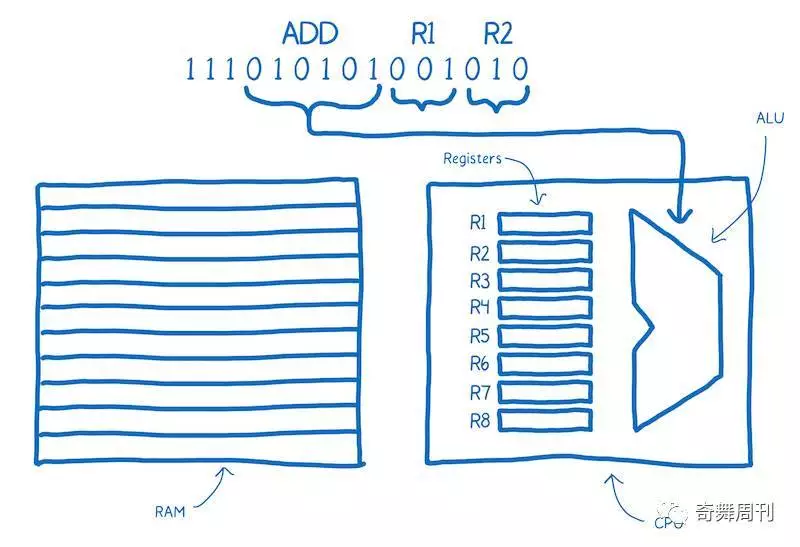 ADD R1 R2
11101010101001010
ALU
Registers
R1
R2
R3
R4
R5
R6
R7
R8
RAM
CPU
奇舞周刊